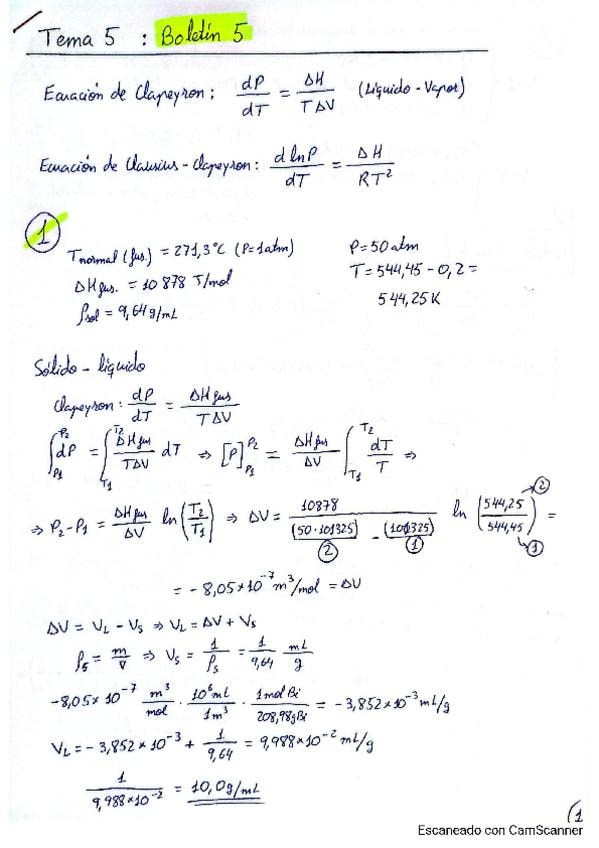 Tema 5 : Boletín 5
Ecuación de Clapeyron: dP/dT = ΔH/TΔV (Líquido-Vapor)
Ecuación de Clausius-Clapeyron: d lnP/dT = ΔH/RT²
1
Tnormal (fus.) = 271,3°C (P=1atm) P=50 atm
ΔHfus. = 10 878 J/mol T=544,45-0,2=
ρsol = 9,64 g/mL 544,25K
Sólido-líquido
Clapeyron: dP/dT = ΔHfus/TΔV
∫P1 P2 dP = ∫T1 T2 ΔHfus/TΔV dT ⇒ [P]P1 P2 = ΔHfus/ΔV ∫T1 T2 dT/T ⇒
⇒ P2-P1 = ΔHfus/ΔV ln(T2/T1) ⇒ ΔV = 10878/((50·101325) - (101325)) ln(544,25/544,45) =
2 1 2 1
= -8,05*10⁻⁷ m³/mol = ΔV
ΔV = VL - Vs ⇒ VL = ΔV + Vs
ρs = m/V ⇒ Vs = 1/ρs = 1/9,64 mL/g
-8,05*10⁻⁷ m³/mol · 10⁶mL/1m³ · 1mol Bi/208,98g Bi = -3,852*10⁻³ mL/g
VL = -3,852*10⁻³ + 1/9,64 = 9,988*10⁻² mL/g
1/9,988*10⁻² = 10,0g/mL
(1
Escaneado con CamScanner